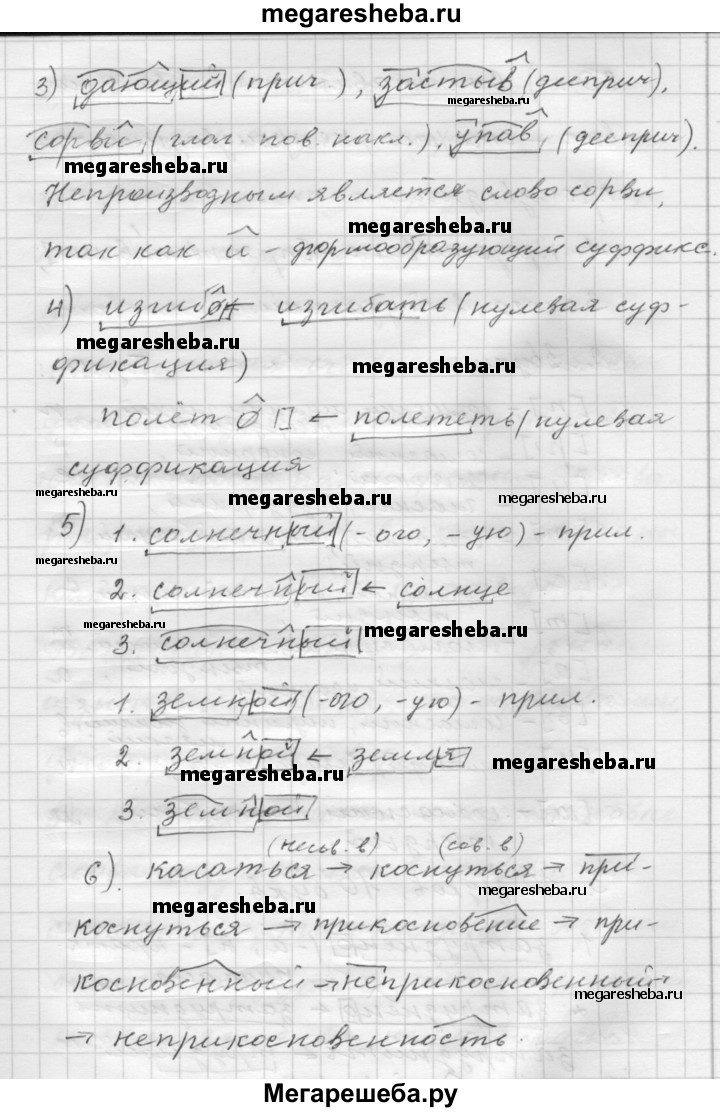 megaresheba.ru
3) дающий (прич.), застыв (дееприч),
megaresheba.ru
сорви, (глаг. пов. накл.), упав, (дееприч).
megaresheba.ru
Непроизводным является слово сорви,
megaresheba.ru
так как и - формообразующий суффикс.
4) изгиб∅ ← изгибать (нулевая суф-
megaresheba.ru
фикация)
megaresheba.ru
полёт ∅ □ ← полететь (нулевая
суффикация
megaresheba.ru megaresheba.ru megaresheba.ru
5) 1. солнечный (-ого, -ую) - прил.
megaresheba.ru
2. солнечный ← солнце
megaresheba.ru megaresheba.ru
3. солнечный
1. земной (-ого, -ую) - прил.
2. земной ← земля
megaresheba.ru megaresheba.ru
3. земной
(несов. в) (сов. в)
6). касаться → коснуться → при-
megaresheba.ru megaresheba.ru
коснуться → прикосновение → при-
косновенный → неприкосновенный →
megaresheba.ru
→ неприкосновенность.
Мегарешеба.ру